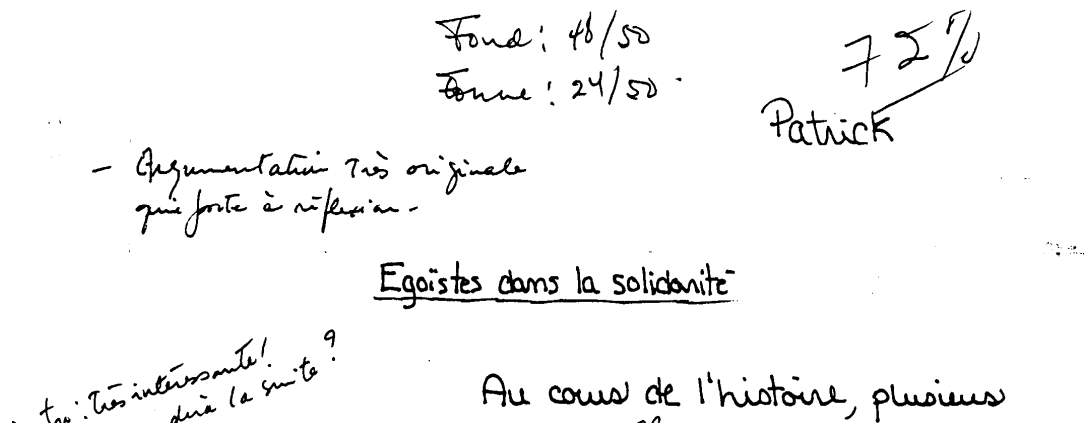 Fond : 48/50
Forme : 24/50
72%
Patrick
- Argumentation très originale
qui porte à réflexion -
Egoïstes dans la solidarité
très intéressante!
la suite ?
Au cours de l'histoire, plusieurs